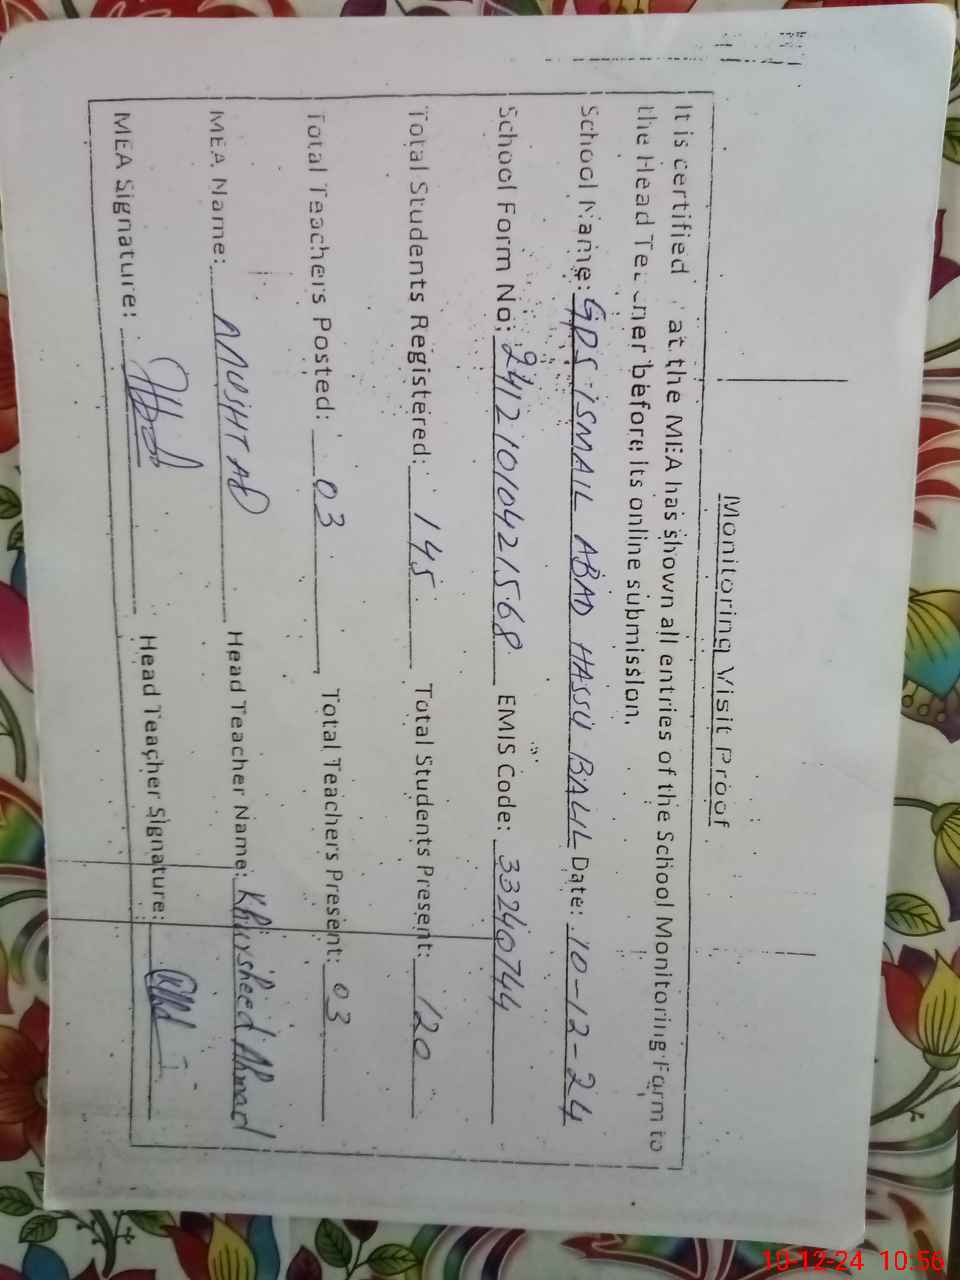 Monitoring Visit Proof
It is certified at the MEA has shown all entries of the School Monitoring Form to
the Head Teacher before its online submission.
School Name: GPS ISMAIL ABAD HASSU BALIL Date: 10-12-24
School Form No: 24121010421568 EMIS Code: 33240744
Total Students Registered: 145 Total Students Present: 120
Total Teachers Posted: 03 Total Teachers Present: 03
MEA Name: NUSHTAD Head Teacher Name: Khursheed Ahmad
MEA Signature: Head Teacher Signature:
10-12-24 10:56